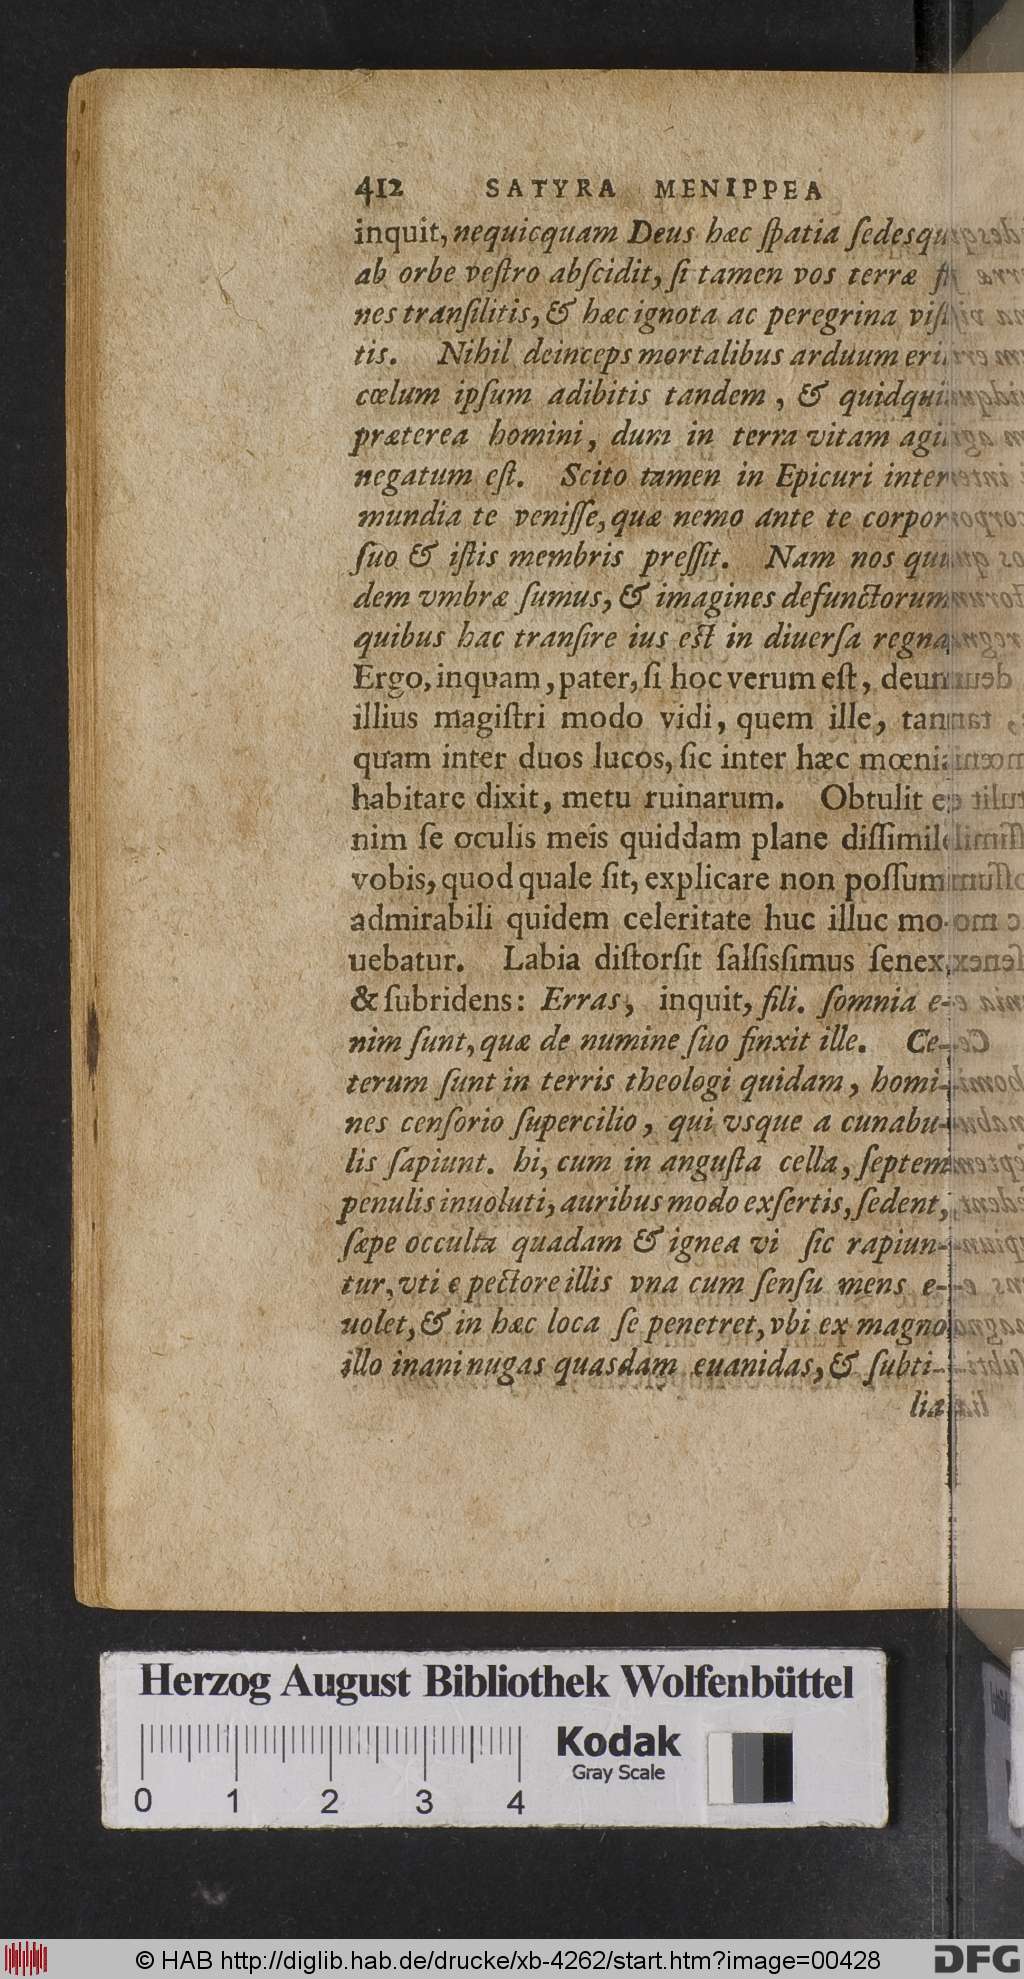 412 SATYRA MENIPPEA
inquit, nequicquam Deus hæc ſpatia ſedesqu
ab orbe veſtro abſcidit, ſi tamen vos terræ fi
nes tranſilitis, & hæc ignota ac peregrina viſi
tis. Nihil deinceps mortalibus arduum eri
cœlum ipſum adibitis tandem, & quidqui
præterea homini, dum in terra vitam agi
negatum eſt. Scito tamen in Epicuri inter
mundia te veniſſe, quæ nemo ante te corpor
ſuo & iſtis membris preſſit. Nam nos qui
dem vmbræ ſumus, & imagines defunctorum
quibus hac tranſire ius eſt in diuerſa regna
Ergo, inquam, pater, ſi hoc verum eſt, deum
illius magiſtri modo vidi, quem ille, tan
quam inter duos lucos, ſic inter hæc mœni
habitare dixit, metu ruinarum. Obtulit e
nim ſe oculis meis quiddam plane diſſimile
vobis, quod quale ſit, explicare non poſſum
admirabili quidem celeritate huc illuc mo-
uebatur. Labia diſtorſit ſalſisſimus ſenex,
& ſubridens: Erras, inquit, fili. ſomnia e-
nim ſunt, quæ de numine ſuo finxit ille. Ce-
terum ſunt in terris theologi quidam, homi-
nes cenſorio ſupercilio, qui vsque a cunabu-
lis ſapiunt. hi, cum in anguſta cella, ſeptem
penulis inuoluti, auribus modo exſertis, ſedent,
ſæpe occulta quadam & ignea vi ſic rapiun-
tur, vti e pectore illis vna cum ſenſu mens e-
uolet, & in hæc loca ſe penetret, vbi ex magno
illo inani nugas quasdam euanidas, & ſubti-
lia
Herzog August Bibliothek Wolfenbüttel
0 1 2 3 4
Kodak
Gray Scale
© HAB http://diglib.hab.de/drucke/xb-4262/start.htm?image=00428
DFG